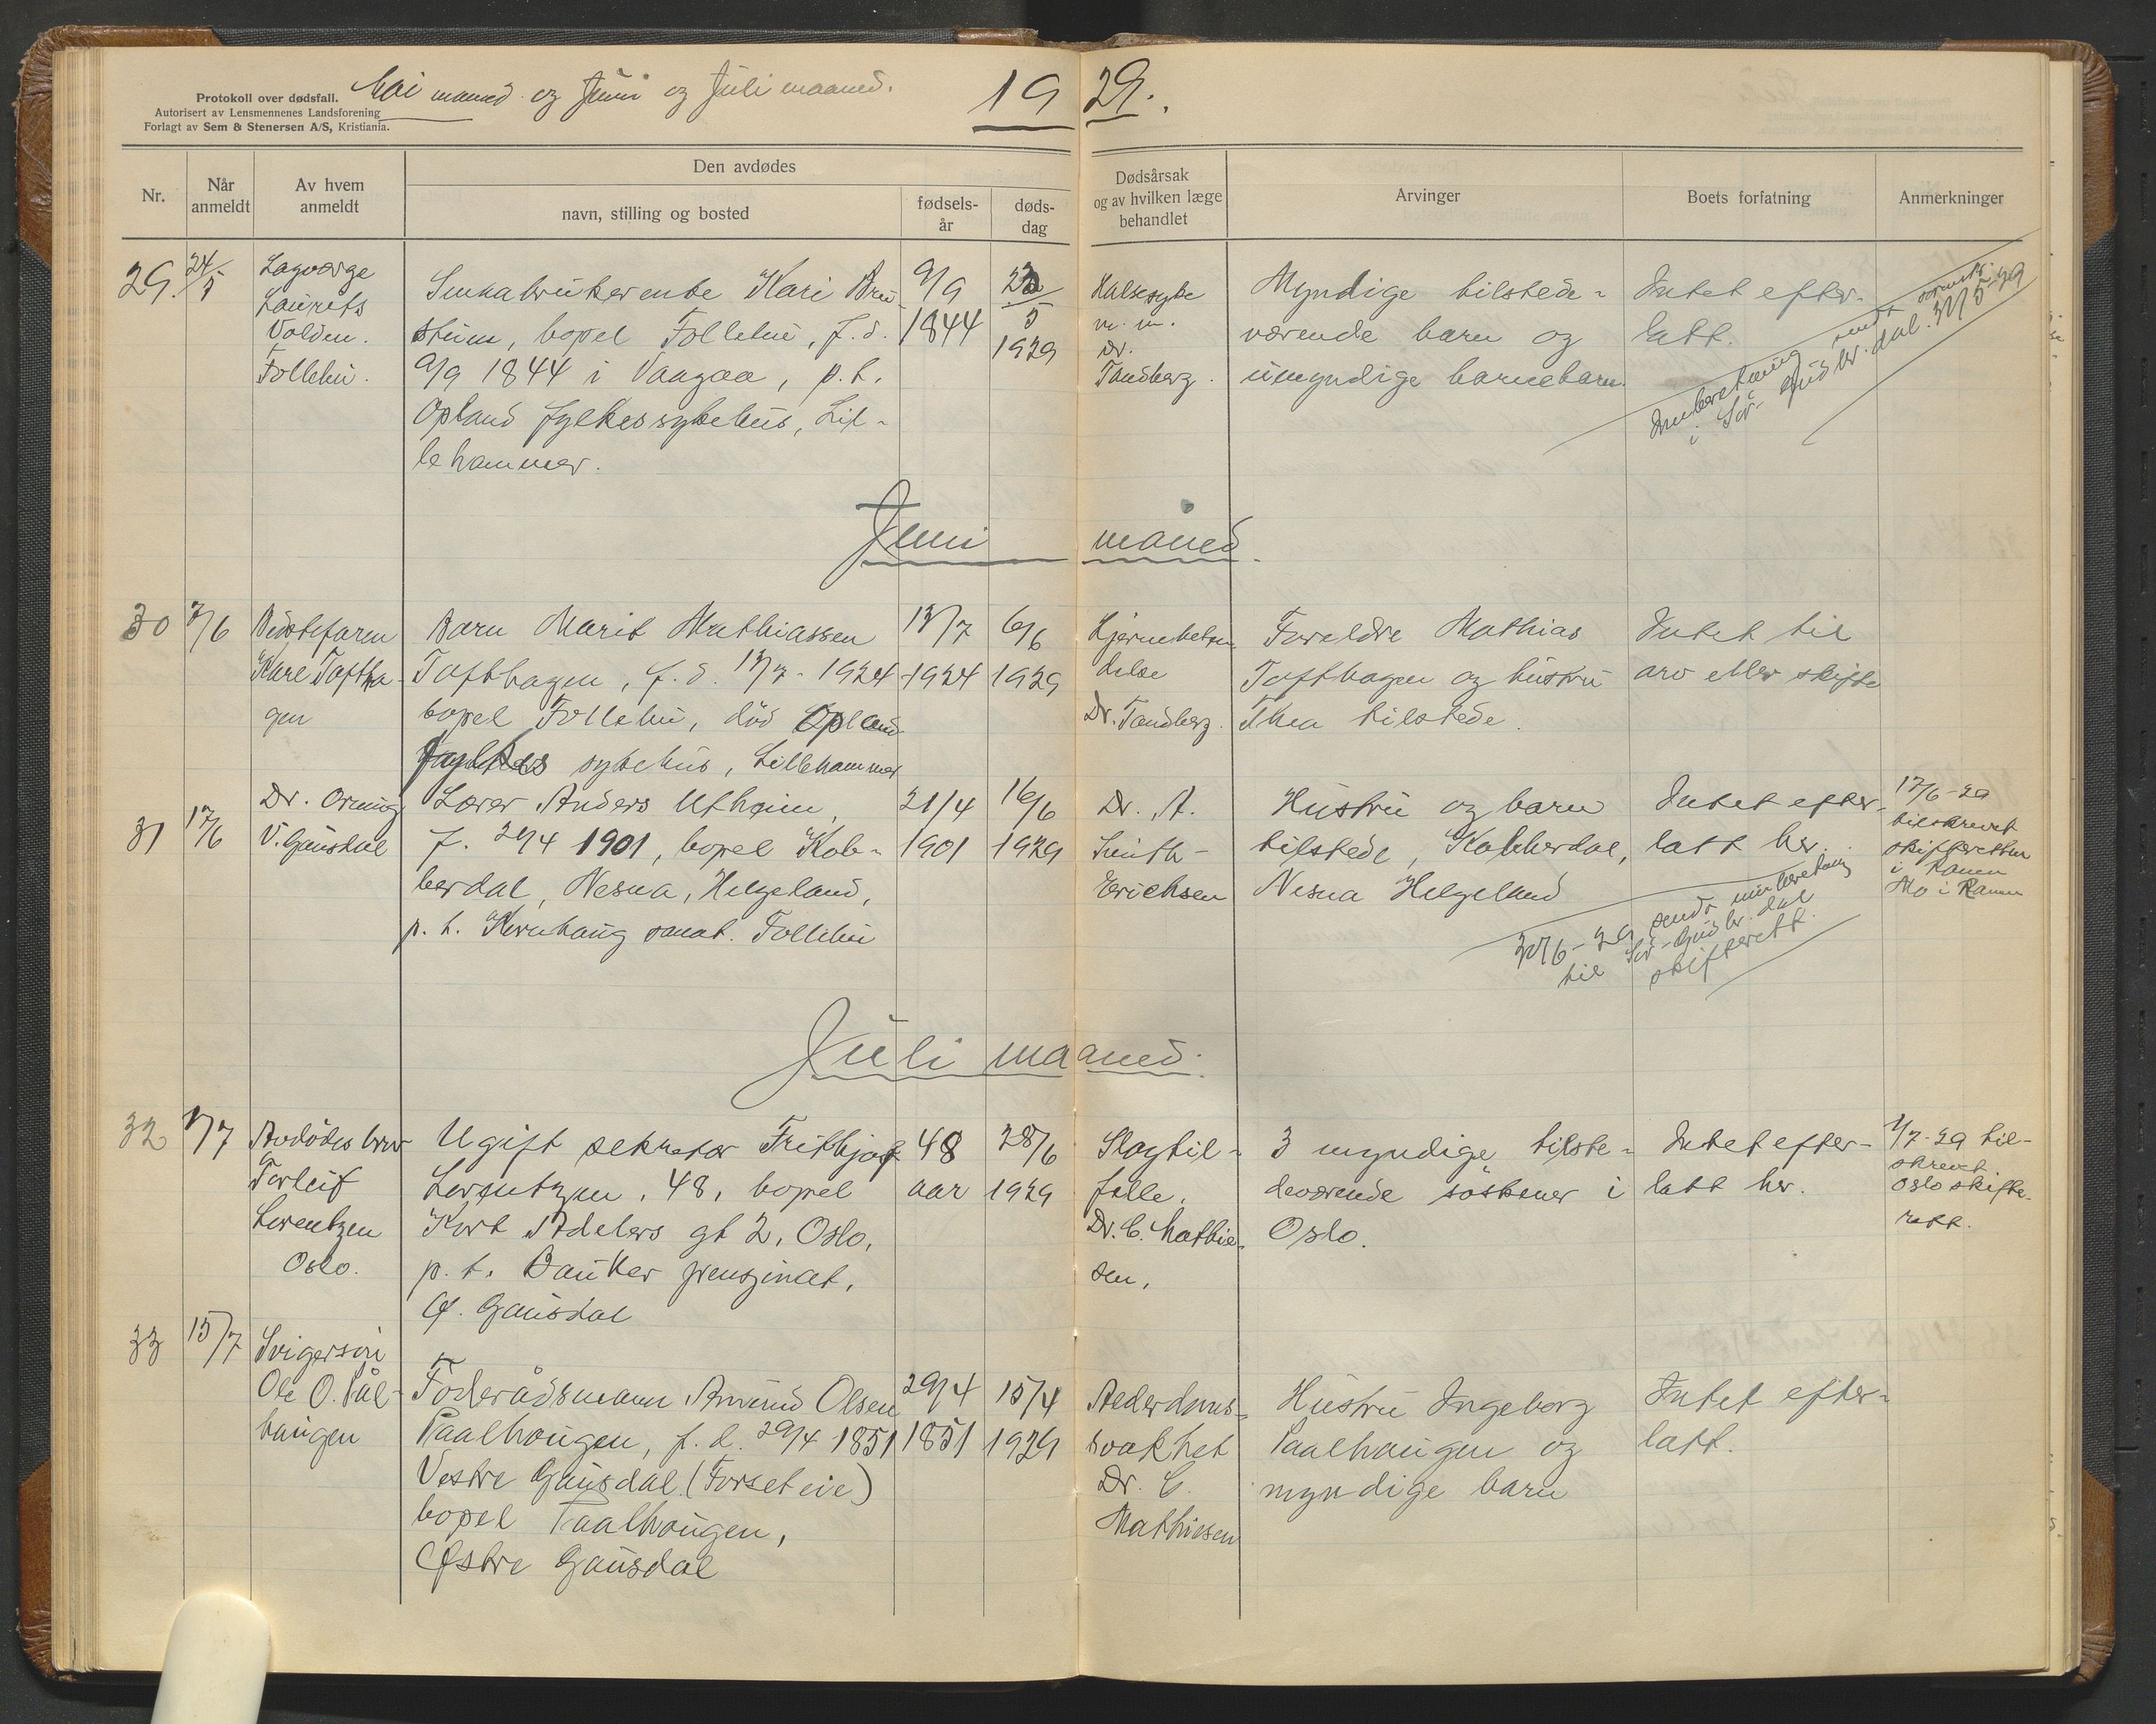 Protokoll over dødsfall.
Autorisert av Lensmennenes Landsforening
Forlagt av Sem & Stenersen A/S, Kristiania.
Mai maaned og Juni og Juli maaned.
19 29.
Nr.
Når anmeldt
Av hvem anmeldt
Den avdødes
navn, stilling og bosted
fødsels-år
døds-dag
Dødsårsak og av hvilken læge behandlet
Arvinger
Boets forfatning
Anmerkninger
29.
24/5
Lagværge
Laurits
Volden.
Follebu.
Smaabrukerenke Kari Bru-
stuen, bopel Follebu, f. d.
9/9 1844 i Vaagaa, p.t.
Opland fylkessykehus, Lil-
lehammer.
9/9
1844
23/5
1929
Halsesyke
m. m.
Dr.
Tandberg.
Myndige tilstede-
værende barn og
umyndige barnebarn.
Intet efter-
latt.
Innberetning sendt sorenskr.
i Sør-Gudbr.dal. 31/5-29
Juni måned.
30
7/6
Bestefaren
Kare Toftha-
gen
Barn Marit Mathiassen
Tofthagen, f. d. 13/7-1924
bopel Follebu, død Opland
fylkes sykehus, Lillehammer
13/7
1924
6/6
1929
Hjernebeten-
delse
Dr. Tandberg.
Foreldre Mathias
Tofthagen og hustru
Thea tilstede.
Intet til
arv eller skifte
31
17/6
Dr. Orning
V. Gausdal
Lærer Anders Utheim,
f. 21/4 1901, bopel Kob-
berdal, Nesna, Helgeland,
p. t. Kornhaug sanat. Follebu
21/4
1901
16/6
1929
Dr. A.
Smith-
Erichsen
Hustru og barn
tilstede, Kobberdal,
Nesna Helgeland
Intet efter-
latt her.
17/6-29
tilskrevet
skifteretten
i Ranen
Mo i Ranen
30/6-29 sendt innberetning
til Sør-Gudbr.dal
skifterett.
Juli maaned.
32
1/7
Avdødes bror
Torleif
Lorentzen
Oslo.
Ugift sekretær Frithjof
Lorentzen, 48, bopel
Kort Adelers gt 2, Oslo,
p. t. Bauker pensjonat,
Ø. Gausdal
48
aar
28/6
1929
Slagtil-
felle.
Dr. C. Mathie-
sen.
3 myndige tilste-
deværende søskener i
Oslo.
Intet efter-
latt her.
1/7-29 til-
skrevet
Oslo skifte-
rett.
33
15/7
Svigersøn
Ole O. Pål-
haugen
Føderådsmann Amund Olsen
Paalhaugen, f. d. 29/4 1851
Vestre Gausdal (Forseteie)
bopel Paalhaugen,
Østre Gausdal
29/4
1851
15/4
1929
Alderdoms-
svakhet
Dr. C.
Mathiesen
Hustru Ingeborg
Paalhaugen og
myndige barn
Intet efter-
latt.